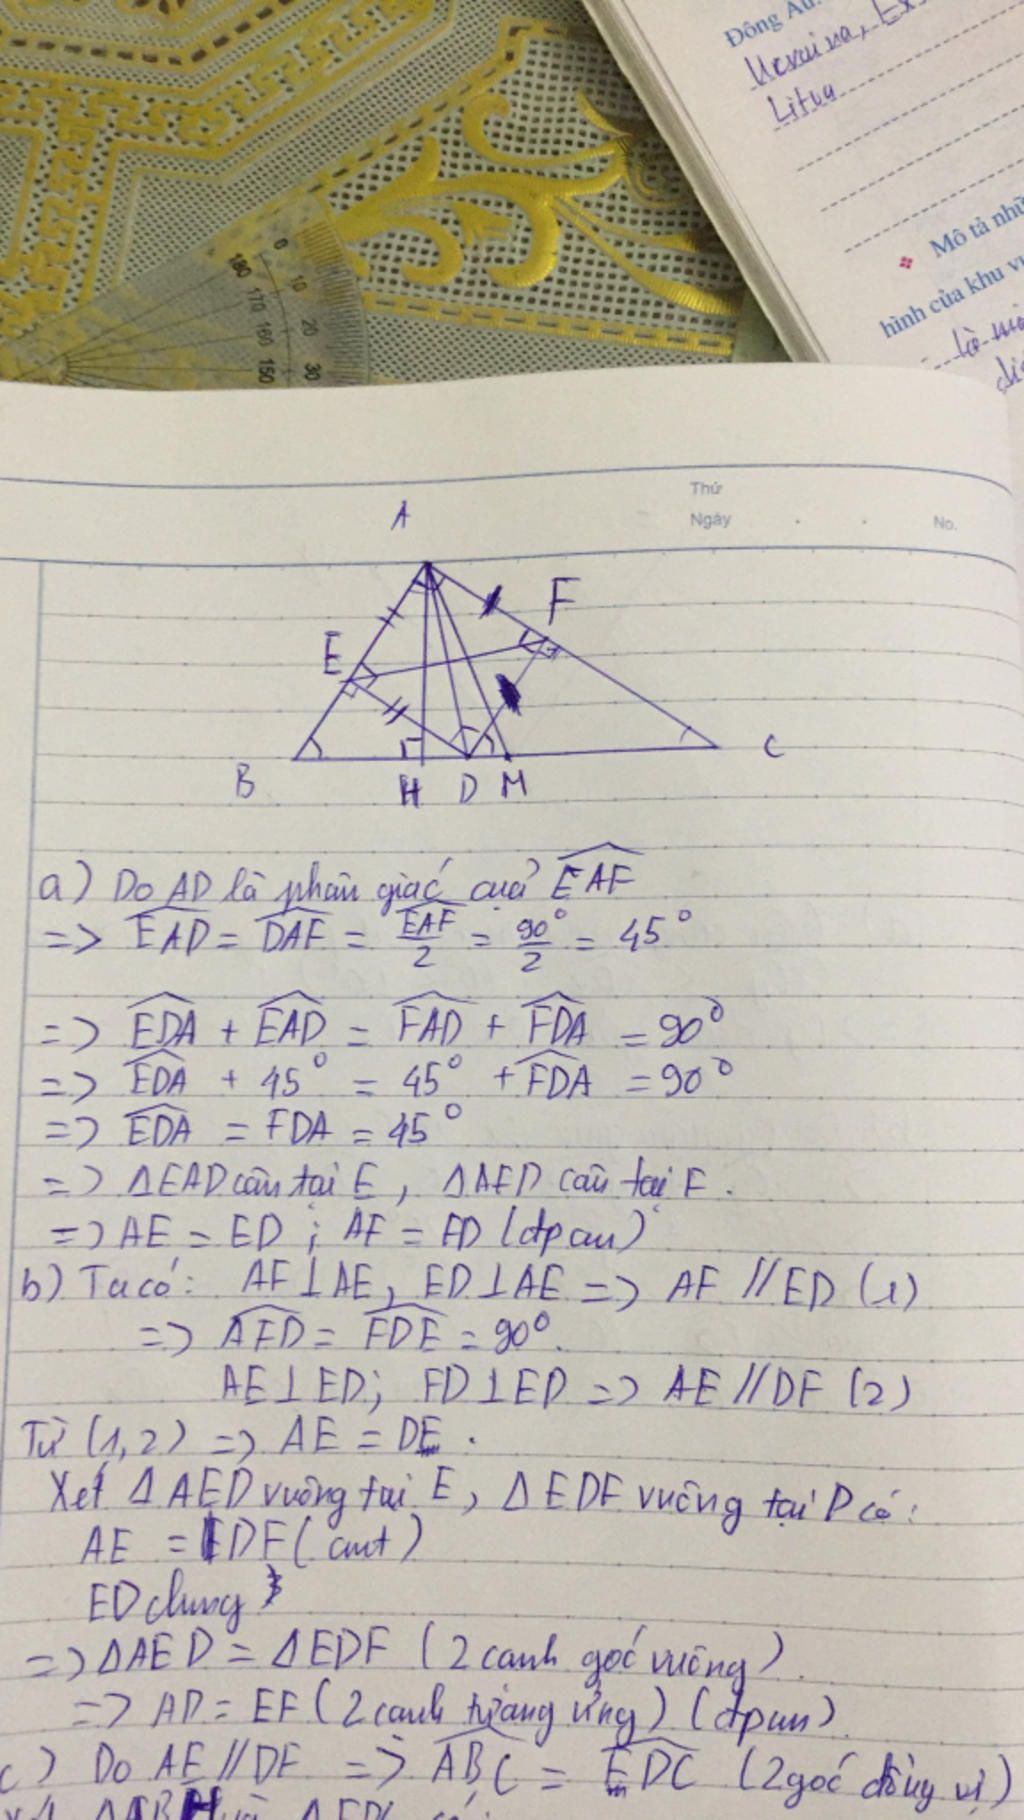 Đông Âu:
Ucraina, Ex
Litva
Mô tả nhữ
hình của khu vự
0
10
20
30
180
170
160
150
Thứ
Ngày
No.
A
E
F
B
H
D
M
C
a) Do AD là phân giác của EAF
=> EAD = DAF = EAF/2 = 90°/2 = 45°
=> EDA + EAD = FAD + FDA = 90°
=> EDA + 45° = 45° + FDA = 90°
=> EDA = FDA = 45°
=> ΔEAD cân tại E, ΔAFD cân tại F.
=> AE = ED ; AF = FD (đpcm)
b) Ta có: AF ⊥ AE, ED ⊥ AE => AF // ED (1)
=> AFD = FDE = 90°.
AE ⊥ ED; FD ⊥ ED => AE // DF (2)
Từ (1,2) => AE = DE.
Xét ΔAED vuông tại E, ΔEDF vuông tại D có:
AE = DF (cmt)
ED chung
=> ΔAED = ΔEDF (2 cạnh góc vuông)
=> AD = EF (2 cạnh tương ứng) (đpcm)
c) Do AE // DF => ABC = FDC (2 góc đồng vị)